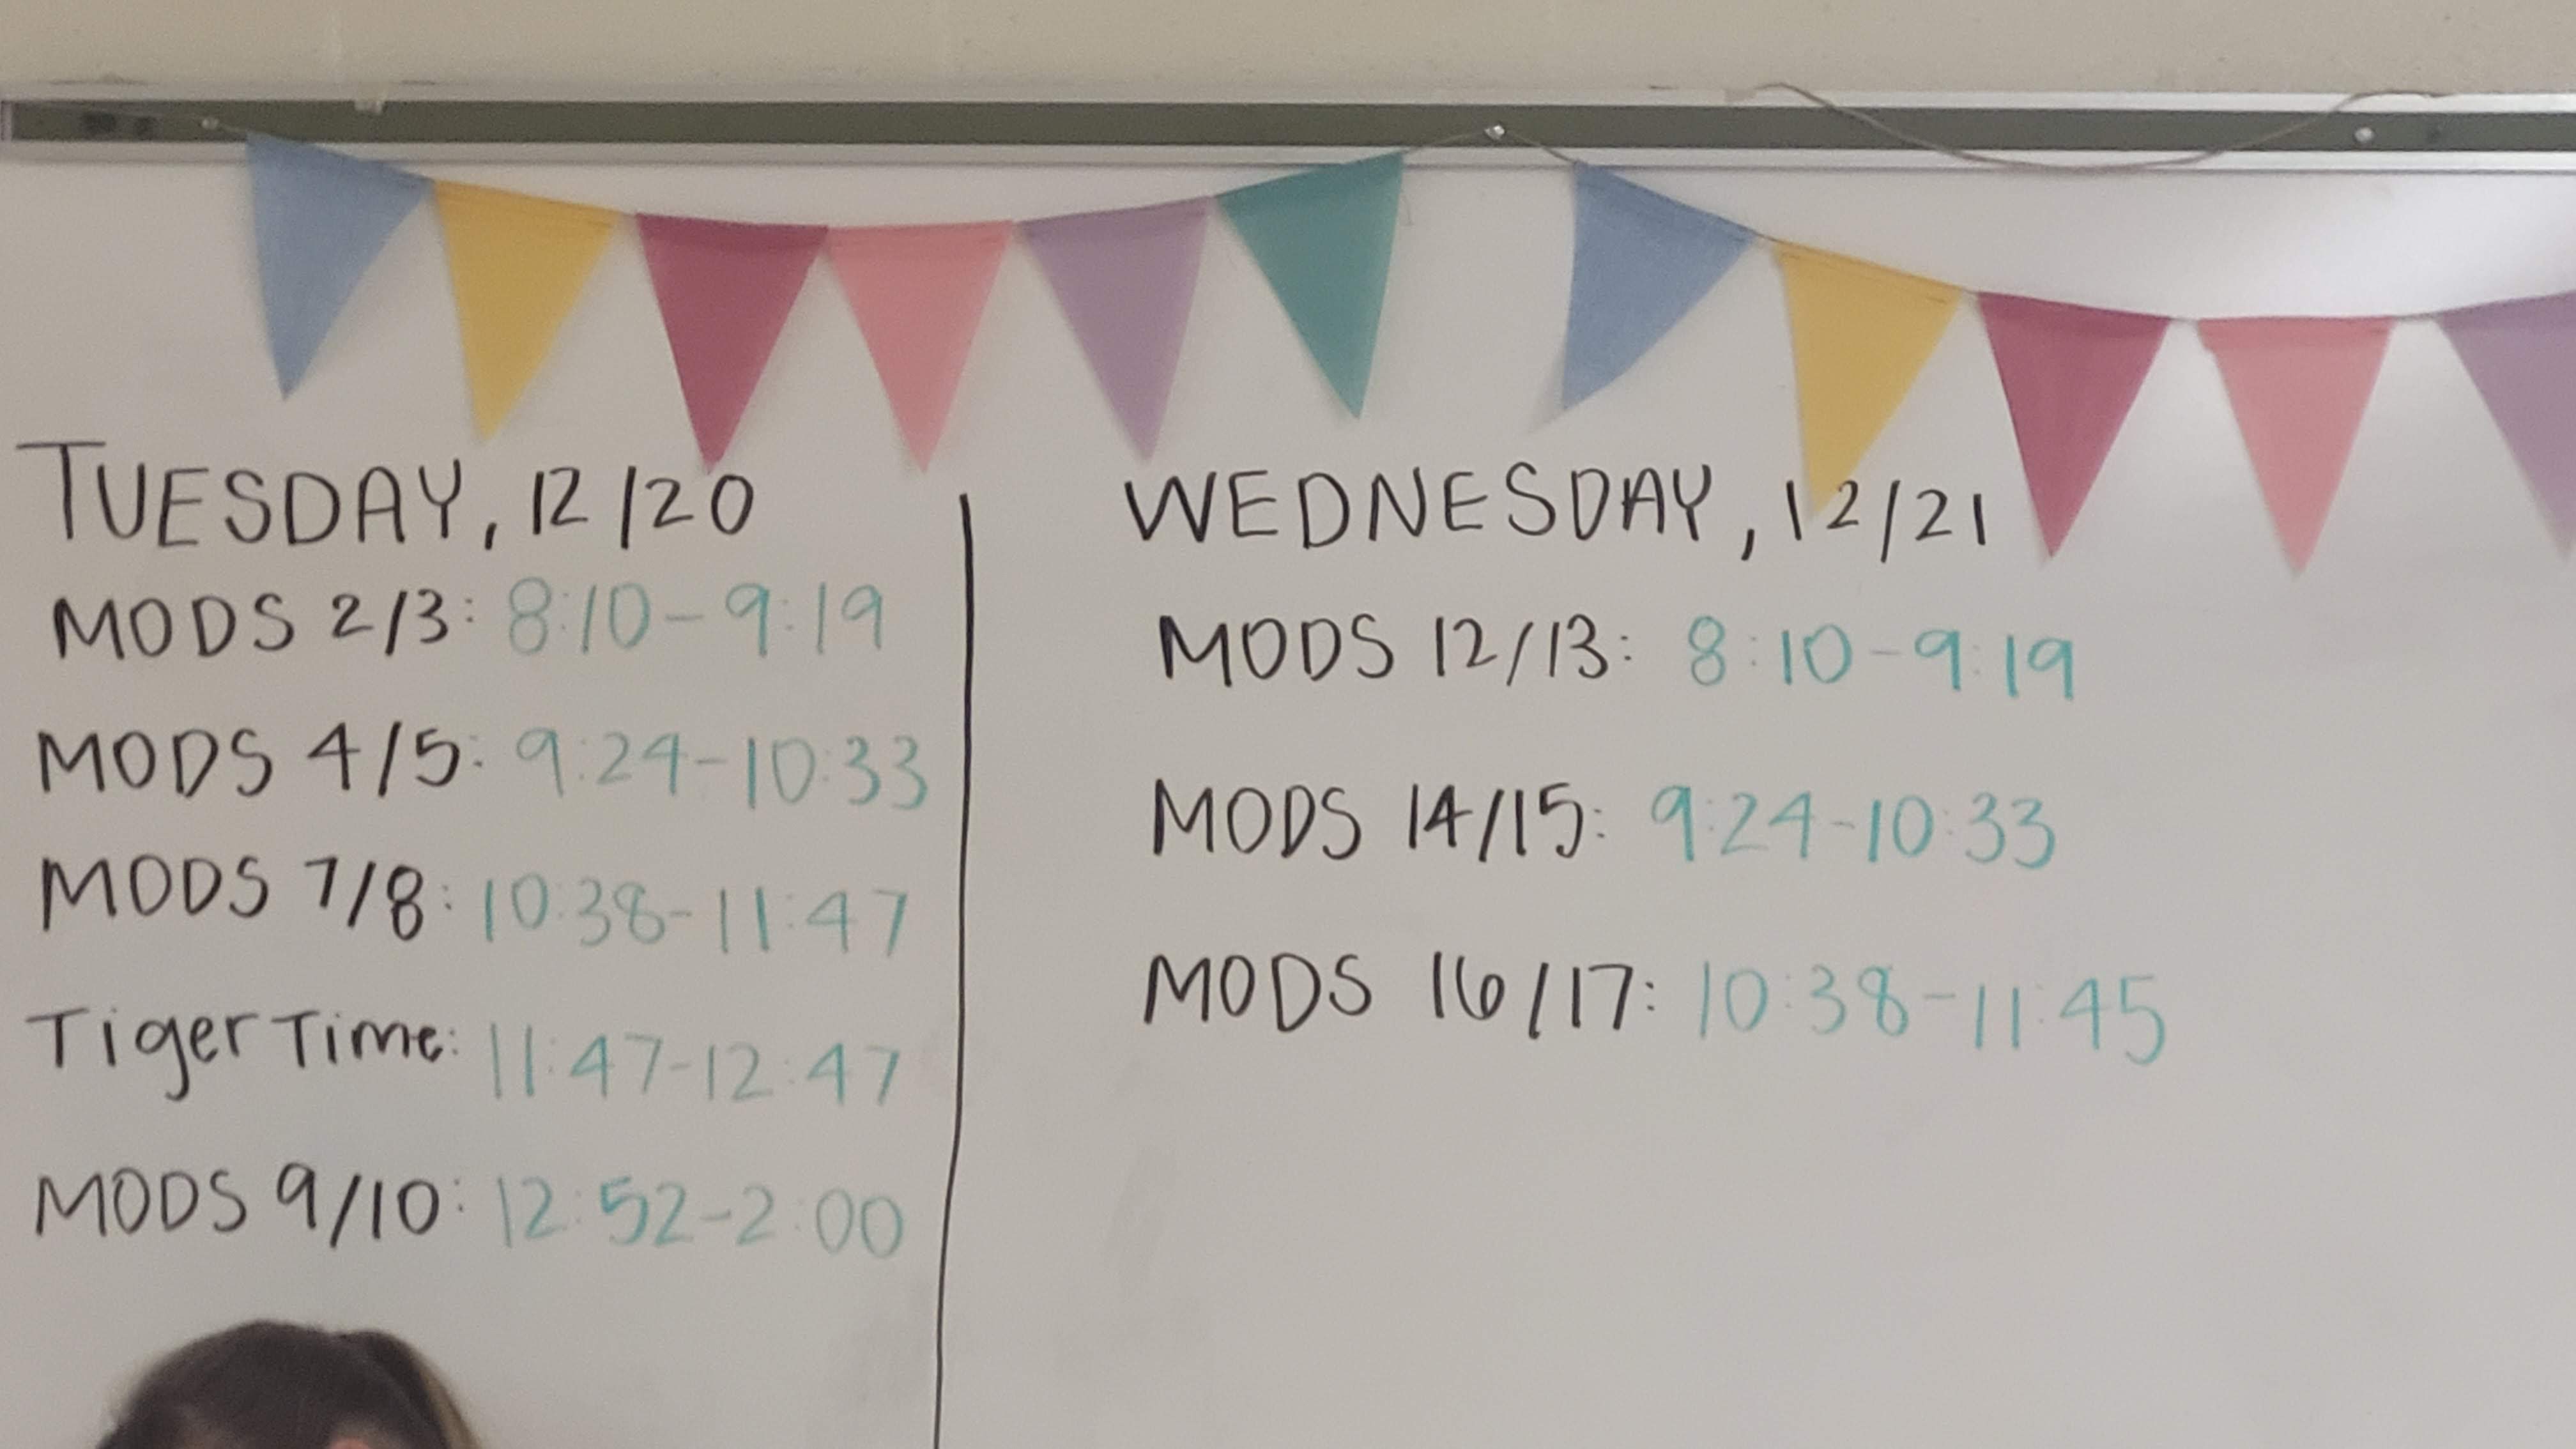 TUESDAY, 12/20
MODS 2/3: 8:10-9:19
MODS 4/5: 9:24-10:33
MODS 7/8: 10:38-11:47
Tiger Time: 11:47-12:47
MODS 9/10: 12:52-2:00
WEDNESDAY, 12/21
MODS 12/13: 8:10-9:19
MODS 14/15: 9:24-10:33
MODS 16/17: 10:38-11:45